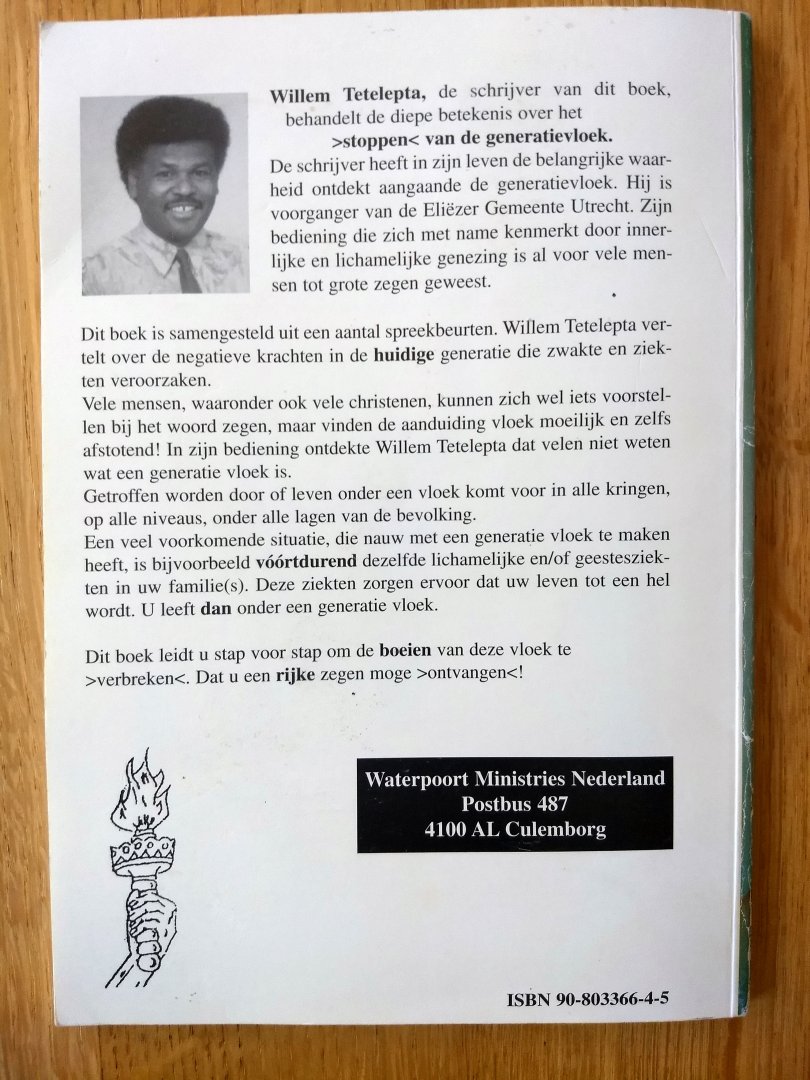 Willem Tetelepta, de schrijver van dit boek,
behandelt de diepe betekenis over het
>stoppen< van de generatievloek.
De schrijver heeft in zijn leven de belangrijke waar-
heid ontdekt aangaande de generatievloek. Hij is
voorganger van de Eliëzer Gemeente Utrecht. Zijn
bediening die zich met name kenmerkt door inner-
lijke en lichamelijke genezing is al voor vele men-
sen tot grote zegen geweest.
Dit boek is samengesteld uit een aantal spreekbeurten. Willem Tetelepta ver-
telt over de negatieve krachten in de huidige generatie die zwakte en ziek-
ten veroorzaken.
Vele mensen, waaronder ook vele christenen, kunnen zich wel iets voorstel-
len bij het woord zegen, maar vinden de aanduiding vloek moeilijk en zelfs
afstotend! In zijn bediening ontdekte Willem Tetelepta dat velen niet weten
wat een generatie vloek is.
Getroffen worden door of leven onder een vloek komt voor in alle kringen,
op alle niveaus, onder alle lagen van de bevolking.
Een veel voorkomende situatie, die nauw met een generatie vloek te maken
heeft, is bijvoorbeeld vóórtdurend dezelfde lichamelijke en/of geestesziek-
ten in uw familie(s). Deze ziekten zorgen ervoor dat uw leven tot een hel
wordt. U leeft dan onder een generatie vloek.
Dit boek leidt u stap voor stap om de boeien van deze vloek te
>verbreken<. Dat u een rijke zegen moge >ontvangen<!
Waterpoort Ministries Nederland
Postbus 487
4100 AL Culemborg
ISBN 90-803366-4-5